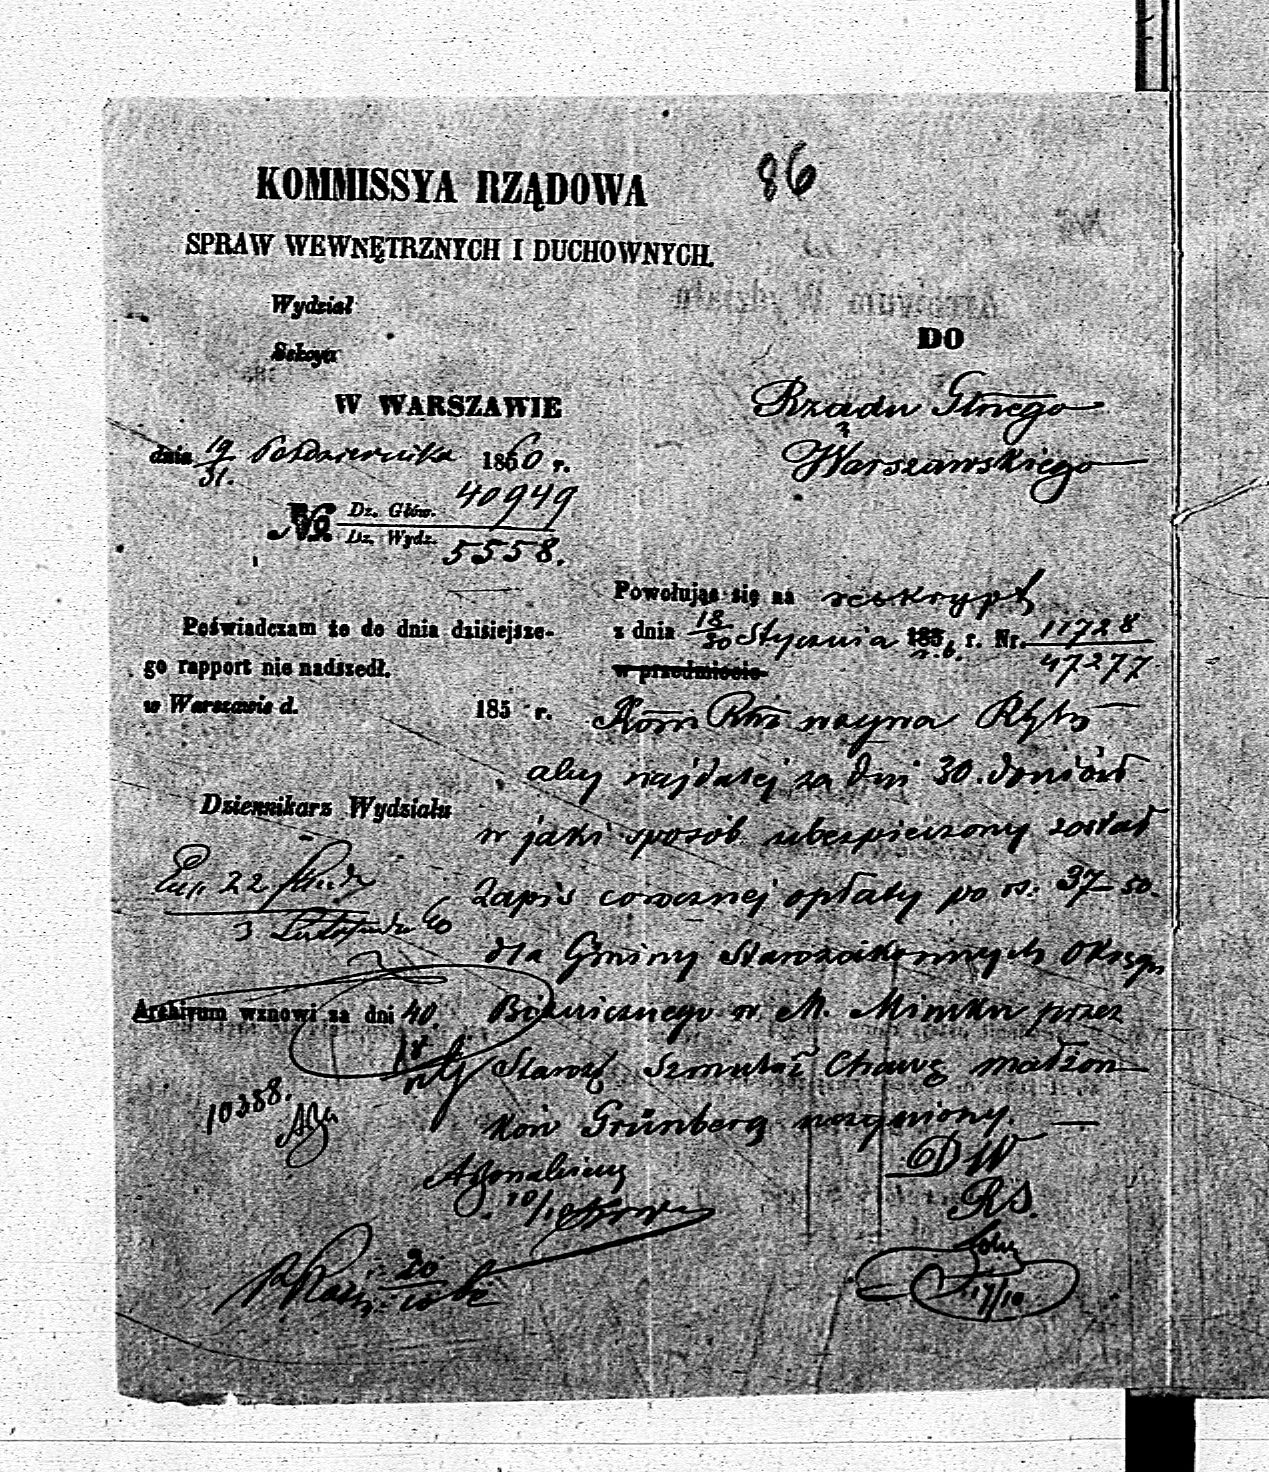 86
KOMMISSYA RZĄDOWA
SPRAW WEWNĘTRZNYCH I DUCHOWNYCH.
Wydział
Sekcya
W WARSZAWIE
dnia 19/31. Października 1860 r.
№ Dz. Głów. 40949
Dz. Wydz. 5558.
DO
Rządu Gbnego
Warszawskiego
Poświadczam że do dnia dzisiejsze-
go rapport nie nadszedł.
w Warszawie d. 185 r.
Dziennikarz Wydziału
3 Listopada 60
Archivum wznowi za dni 40.
10388.
Powołując się na reskrypt
z dnia 18/30 Stycznia 185 r. b. r. Nr. 11728/47277
w przedmiocie
Kom Rzą wzywa Rząd
aby najdalej za dni 30. doniósł
w jaki sposób ubezpieczony został
Zapis corocznej opłaty po rs. 37-50.
dla Gminy Starozakonnych Okręgu
Bóżniczego w M. Mińsku przez
Staroz Szmula i Chawę małżon
ków Grünberg uczyniony.
DW
RS.
17/10
20/10